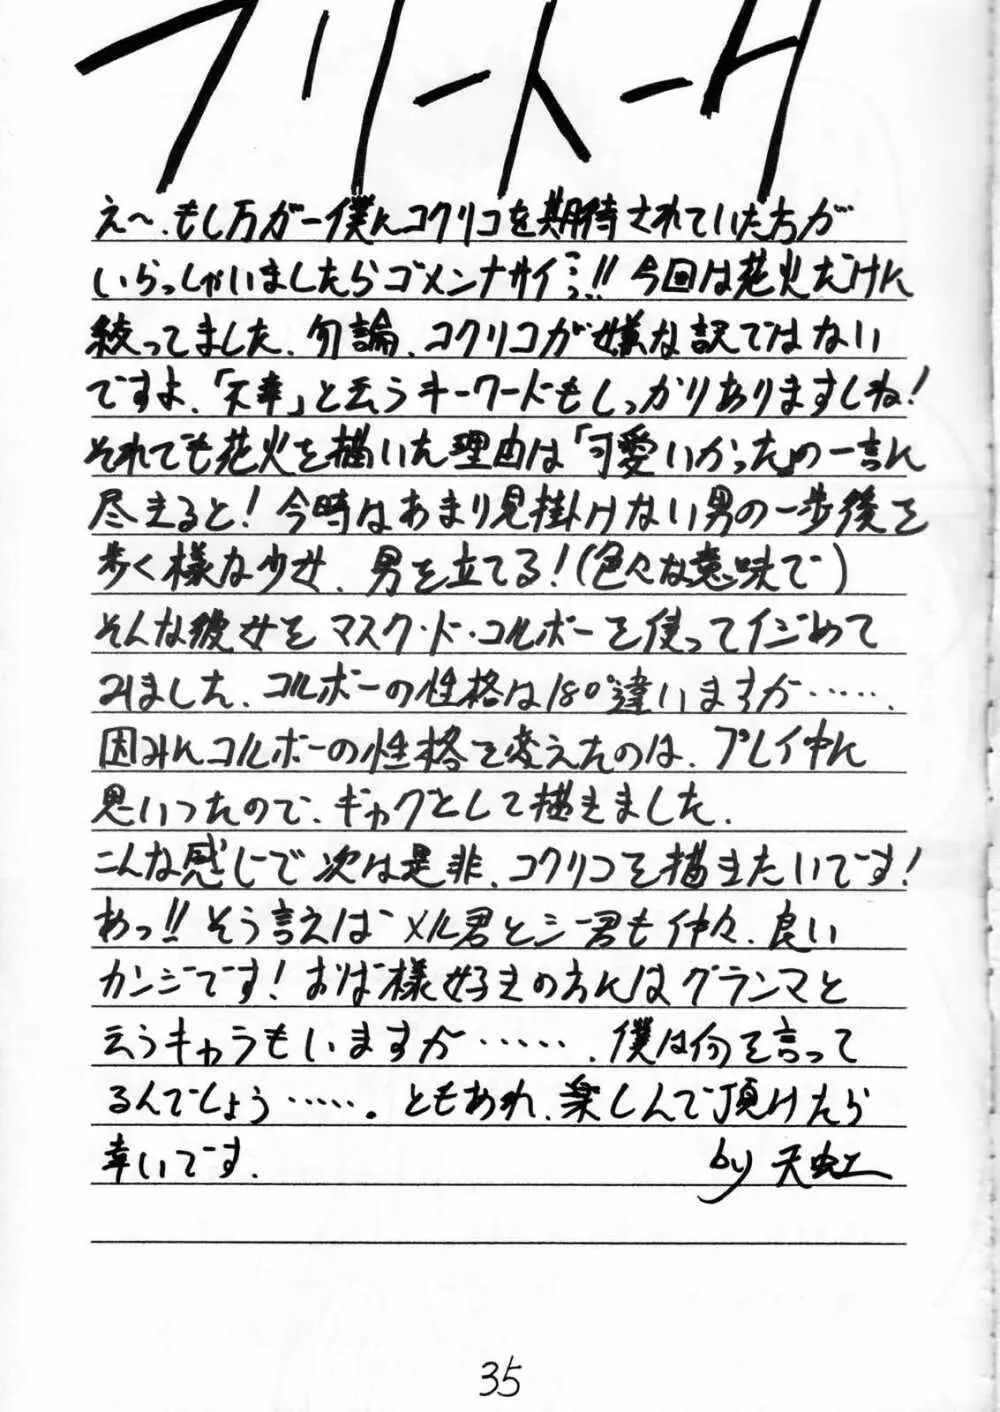 フリートーク
え〜、もし万が一僕にコクリコを期待されていた方が
いらっしゃいましたらゴメンナサイ…!! 今回は花火だけに
絞ってました、勿論、コクリコが嫌な訳ではない
ですよ、「不幸」と云うキーワードもしっかりありますしね!
それでも花火を描いた理由は「可愛いかった」の一言に
尽きると! 今時はあまり見掛けない男の一歩後を
歩く様な少女、男を立てる!(色々な意味で)
そんな彼女をマスク・ド・コルボーを使ってイジめて
みました、コルボーの性格は180°違いますが……
因みにコルボーの性格を変えたのは、プレイ中に
思いつたので、ギャグとして描きました、
こんな感じで次は是非、コクリコを描きたいです!
あっ!! そう言えば メル君とシー君も仲々、良い
カンジです! おば様好きの方にはグランマと
云うキャラもいますが……、僕は何を言って
るんでしょう……。ともあれ、楽しんで頂けたら
幸いです、 by 天虹
35